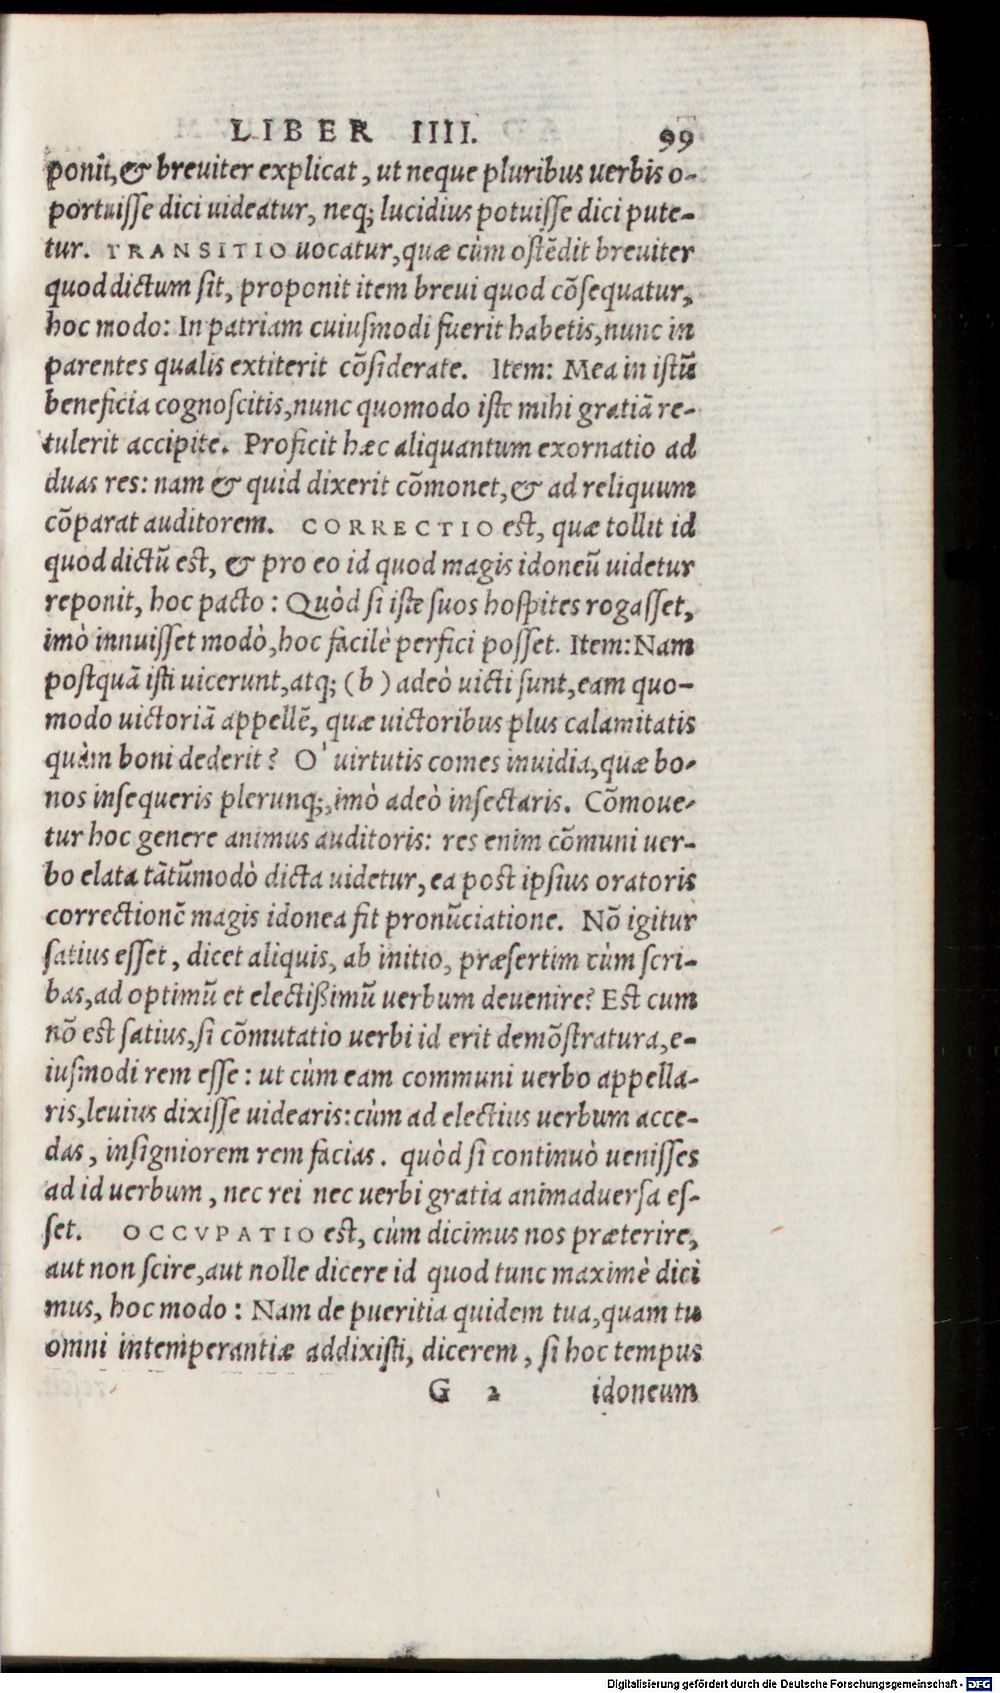 LIBER IIII. 99
ponit, & breuiter explicat, ut neque pluribus uerbis o-
portuiſſe dici uideatur, neq; lucidius potuiſſe dici pute-
tur. TRANSITIO uocatur, quæ cùm oſtẽdit breuiter
quod dictum ſit, proponit item breui quod cõſequatur,
hoc modo: In patriam cuiuſmodi fuerit habetis, nunc in
parentes qualis extiterit cõſiderate. Item: Mea in iſtũ
beneficia cognoſcitis, nunc quomodo iſte mihi gratiã re-
tulerit accipite. Proficit hæc aliquantum exornatio ad
duas res: nam & quid dixerit cõmonet, & ad reliquum
cõparat auditorem. CORRECTIO eſt, quæ tollit id
quod dictũ eſt, & pro eo id quod magis idoneũ uidetur
reponit, hoc pacto: Quòd ſi iſte ſuos hoſpites rogaſſet,
imò innuiſſet modò, hoc facilè perfici poſſet. Item: Nam
poſtquã iſti uicerunt, atq; (b) adeò uicti ſunt, eam quo-
modo uictoriã appellẽ, quæ uictoribus plus calamitatis
quàm boni dederit? O' uirtutis comes inuidia, quæ bo-
nos inſequeris plerunq;, imò adeò inſectaris. Cõmoue-
tur hoc genere animus auditoris: res enim cõmuni uer-
bo elata tãtũmodò dicta uidetur, ea poſt ipſius oratoris
correctionẽ magis idonea fit pronũciatione. Nõ igitur
ſatius eſſet, dicet aliquis, ab initio, præſertim cùm ſcri-
bas, ad optimũ et electißimũ uerbum deuenire? Eſt cum
nõ eſt ſatius, ſi cõmutatio uerbi id erit demõſtratura, e-
iuſmodi rem eſſe: ut cùm eam communi uerbo appella-
ris, leuius dixiſſe uidearis: cùm ad electius uerbum acce-
das, inſigniorem rem facias. quòd ſi continuò ueniſſes
ad id uerbum, nec rei nec uerbi gratia animaduerſa eſ-
ſet. OCCVPATIO eſt, cùm dicimus nos præterire,
aut non ſcire, aut nolle dicere id quod tunc maximè dici
mus, hoc modo: Nam de pueritia quidem tua, quam tu
omni intemperantiæ addixiſti, dicerem, ſi hoc tempus
G 2 idoneum
Digitalisierung gefördert durch die Deutsche Forschungsgemeinschaft - DFG